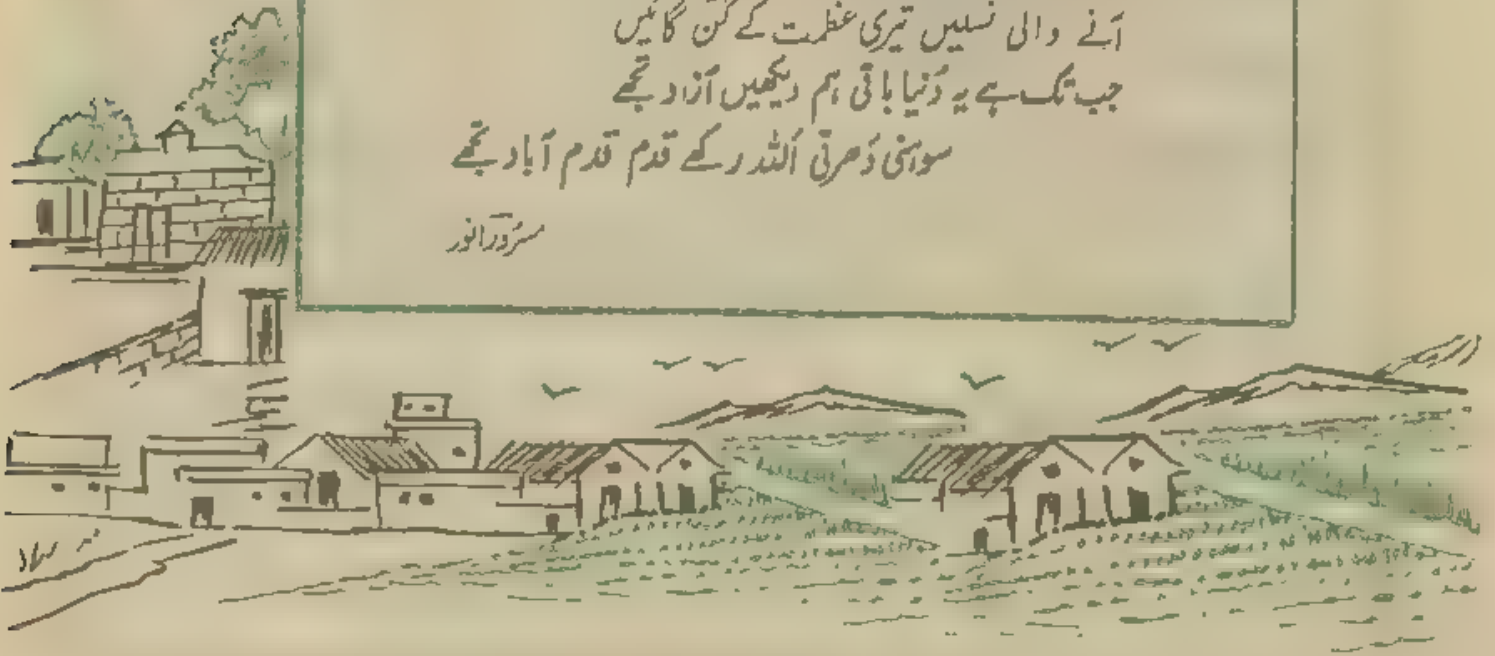 آنے والی نسلیں تیری عظمت کے گن گائیں
جب تک ہے یہ دُنیا باقی ہم دیکھیں آزاد تجھے
سوہنی دَھرتی اَللہ رکھے قدم قدم آباد تجھے
مسرُورانور